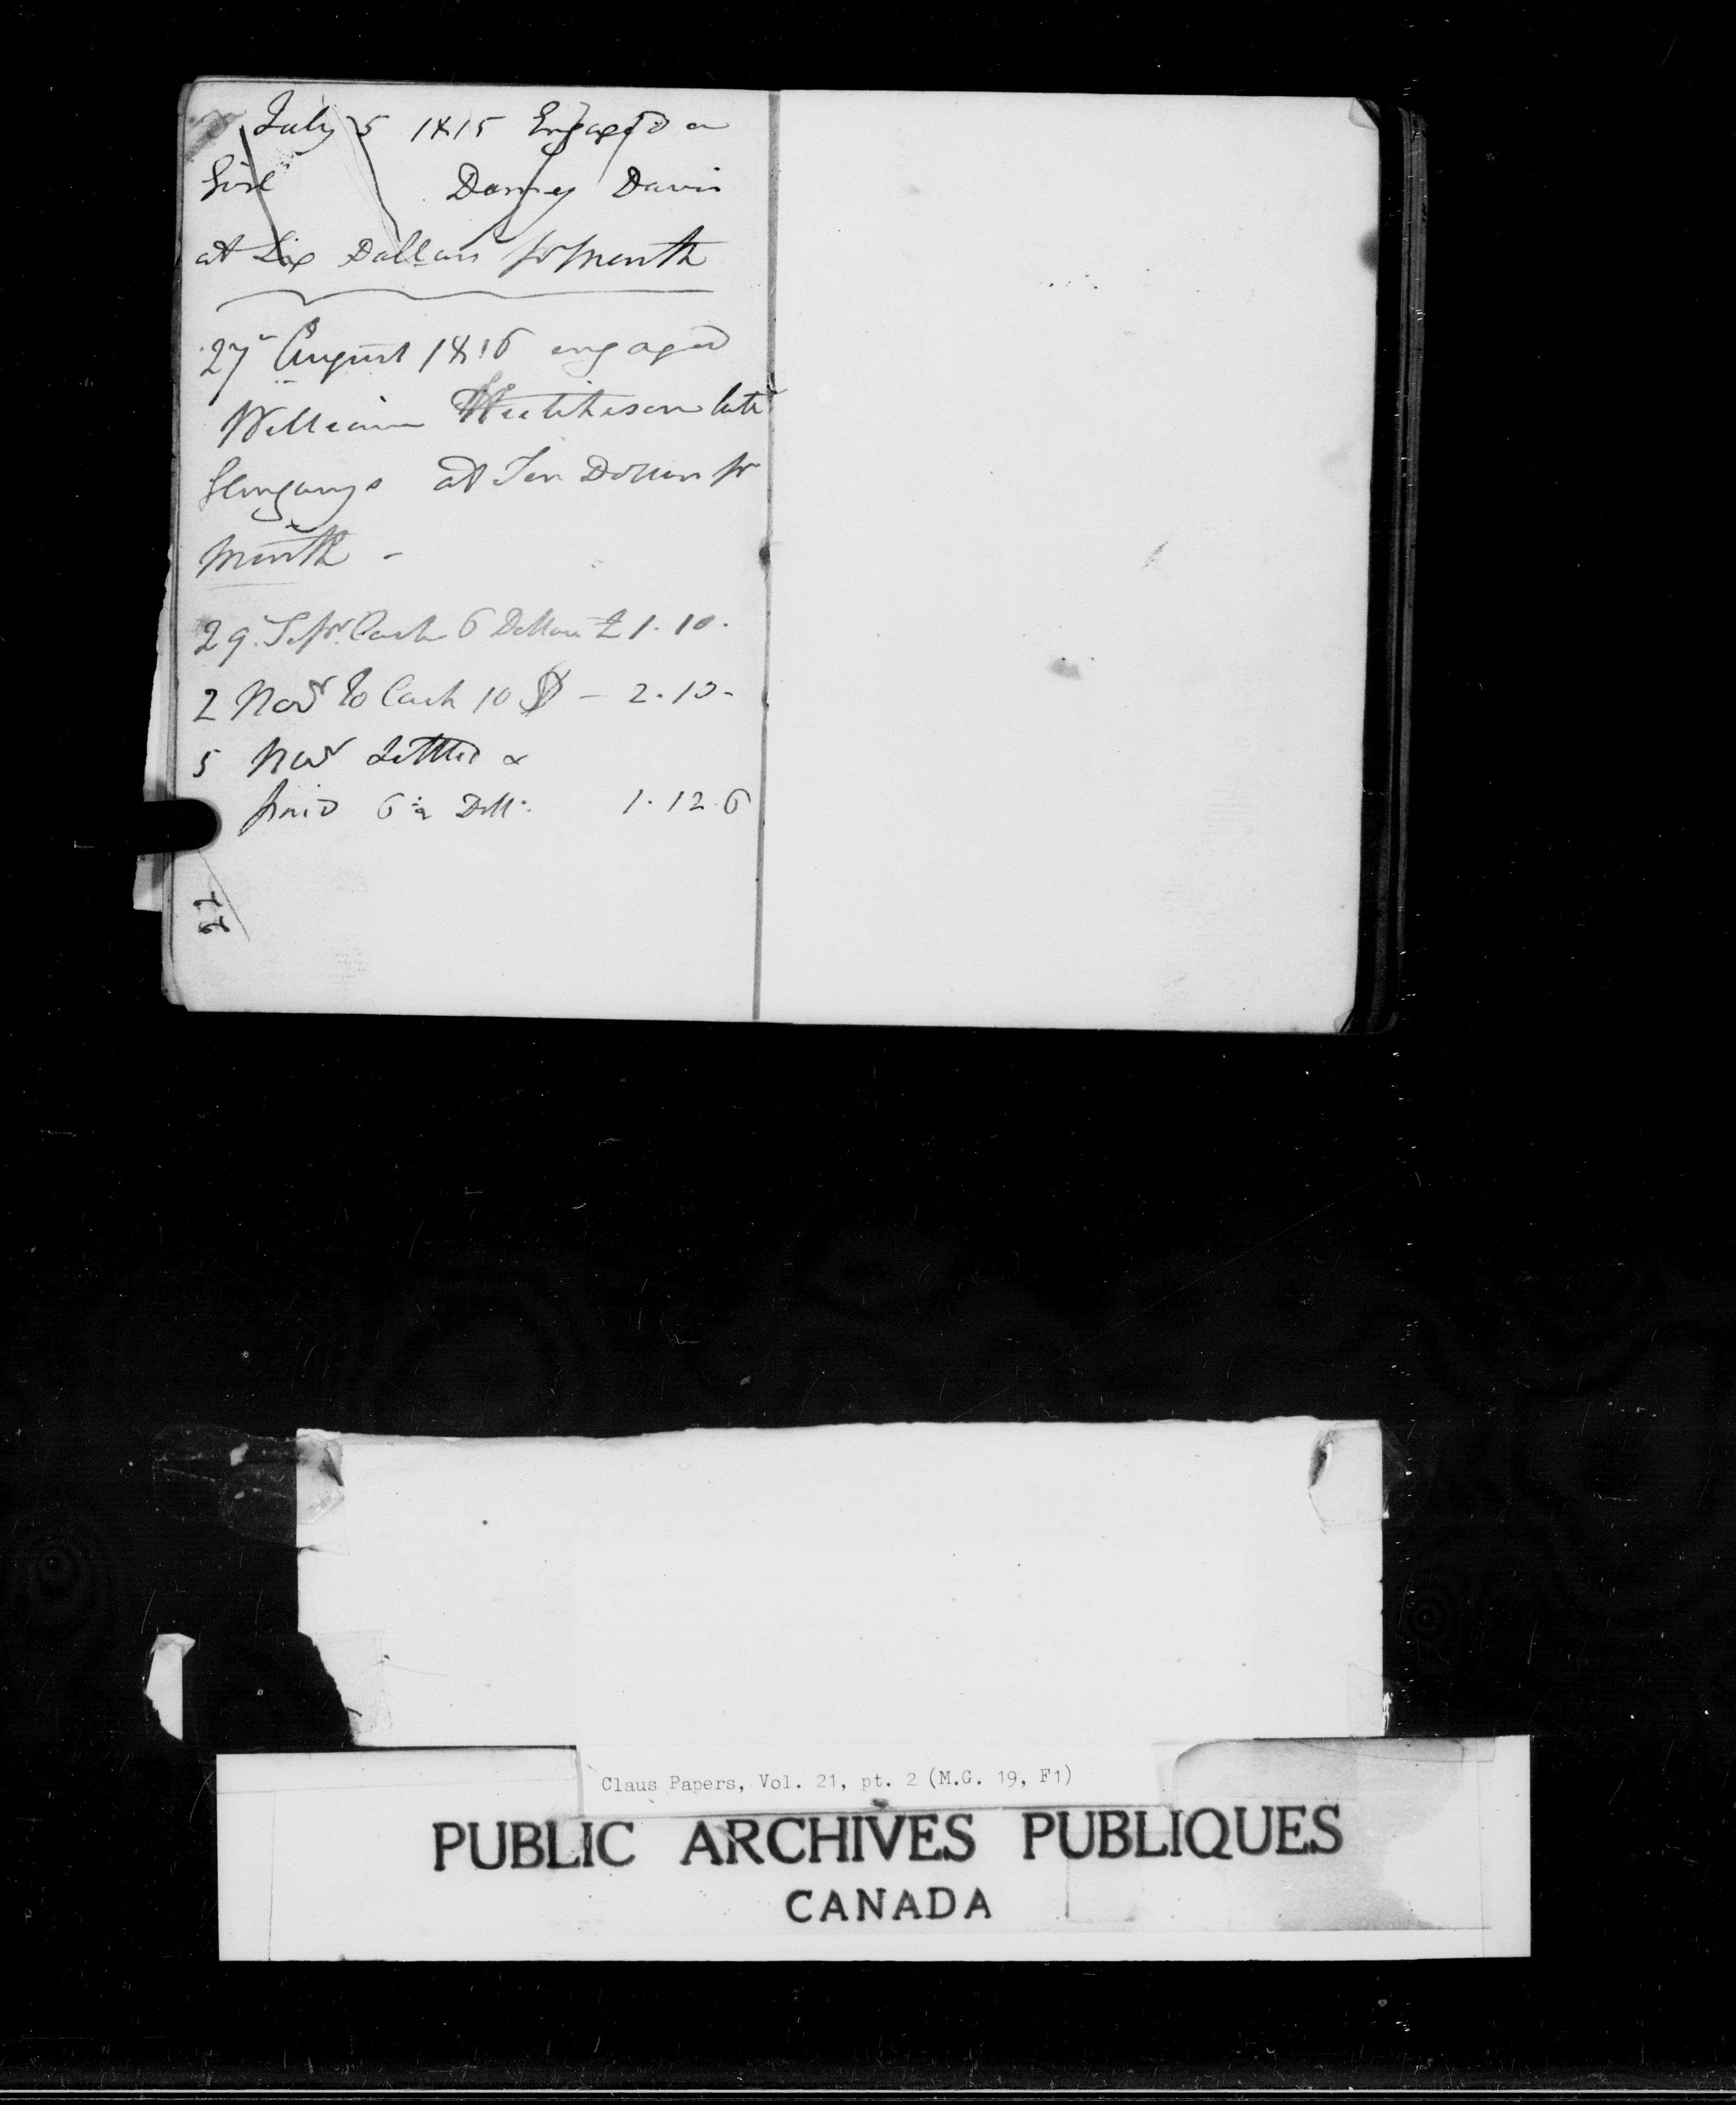 July 5 1815 Engaged a
Girl Davis
at Six Dollars pr month
27 August 1816 engaged
William Hutcheson late
Glengarys at Ten Dollars pr
month -
29. Sepr. Cash 6 Dollars £1.10.
2 Novr To Cash 10 D - 2.10-
5 Novr Settled &
paid 6 ½ Doll. 1.12.6
Claus Papers, Vol. 21, pt. 2 (M.G. 19, F1)
PUBLIC ARCHIVES PUBLIQUES
CANADA